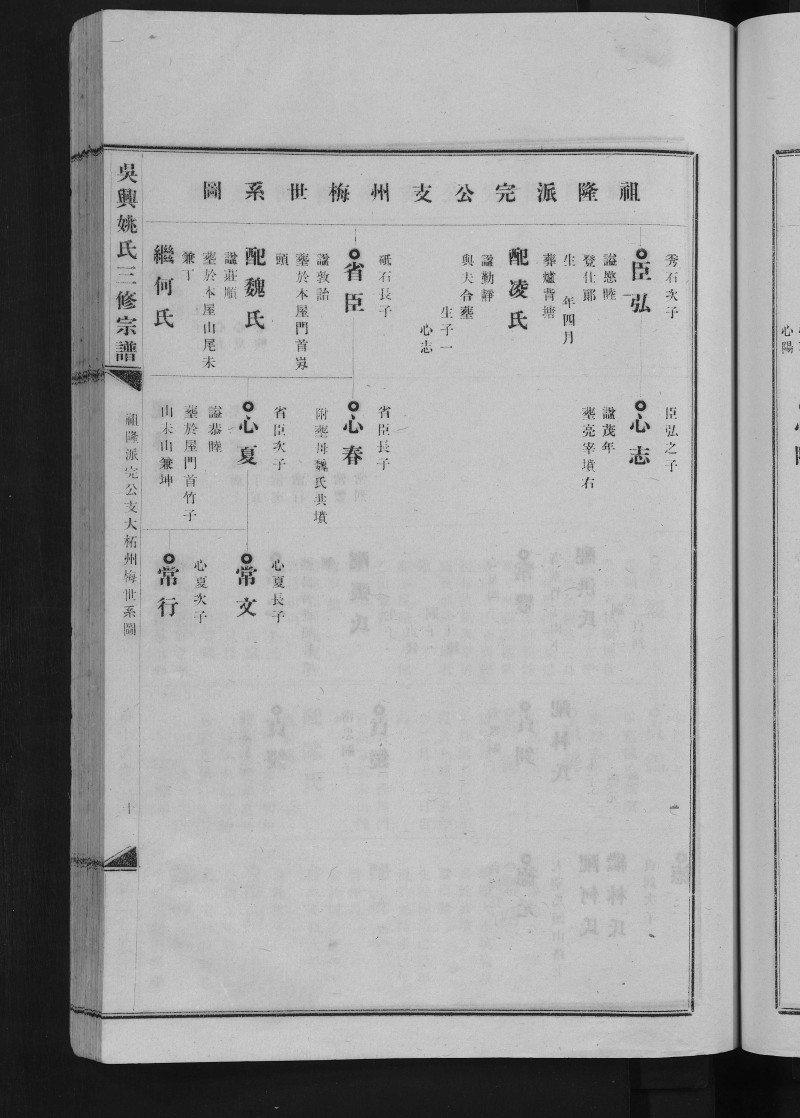 祖隆派完公支州梅世系圖
秀石次子
臣弘
諡愍睦
登仕郎
生 年四月
葬爐背塘
配凌氏
諡勤靜
與夫合墓
生子一
心志
砥石長子
省臣
諡敦詒
墓於本屋門首嵬
頭
配魏氏
諡莊順
墓於本屋山尾未
兼丁
繼何氏
臣弘之子
心志
諡茂年
墓亮宰墳右
省臣長子
心春
附墓母魏氏共墳
省臣次子
心夏
諡恭睦
墓於屋門首竹子
山未山兼坤
心夏長子
常文
心夏次子
常行
吳興姚氏三修宗譜
祖隆派完公支大柘州梅世系圖
十
心陽